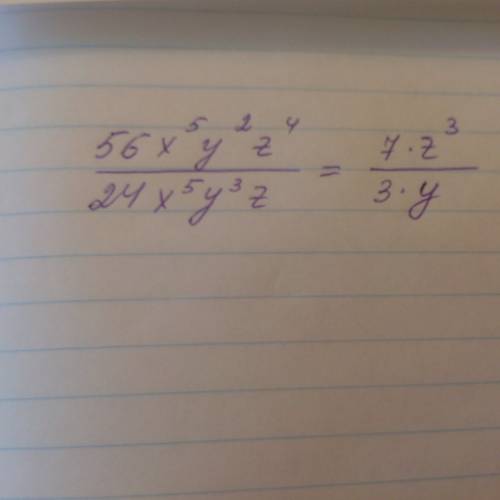 56x⁵y²z⁴ / 24x⁵y³z = 7·z³ / 3·y